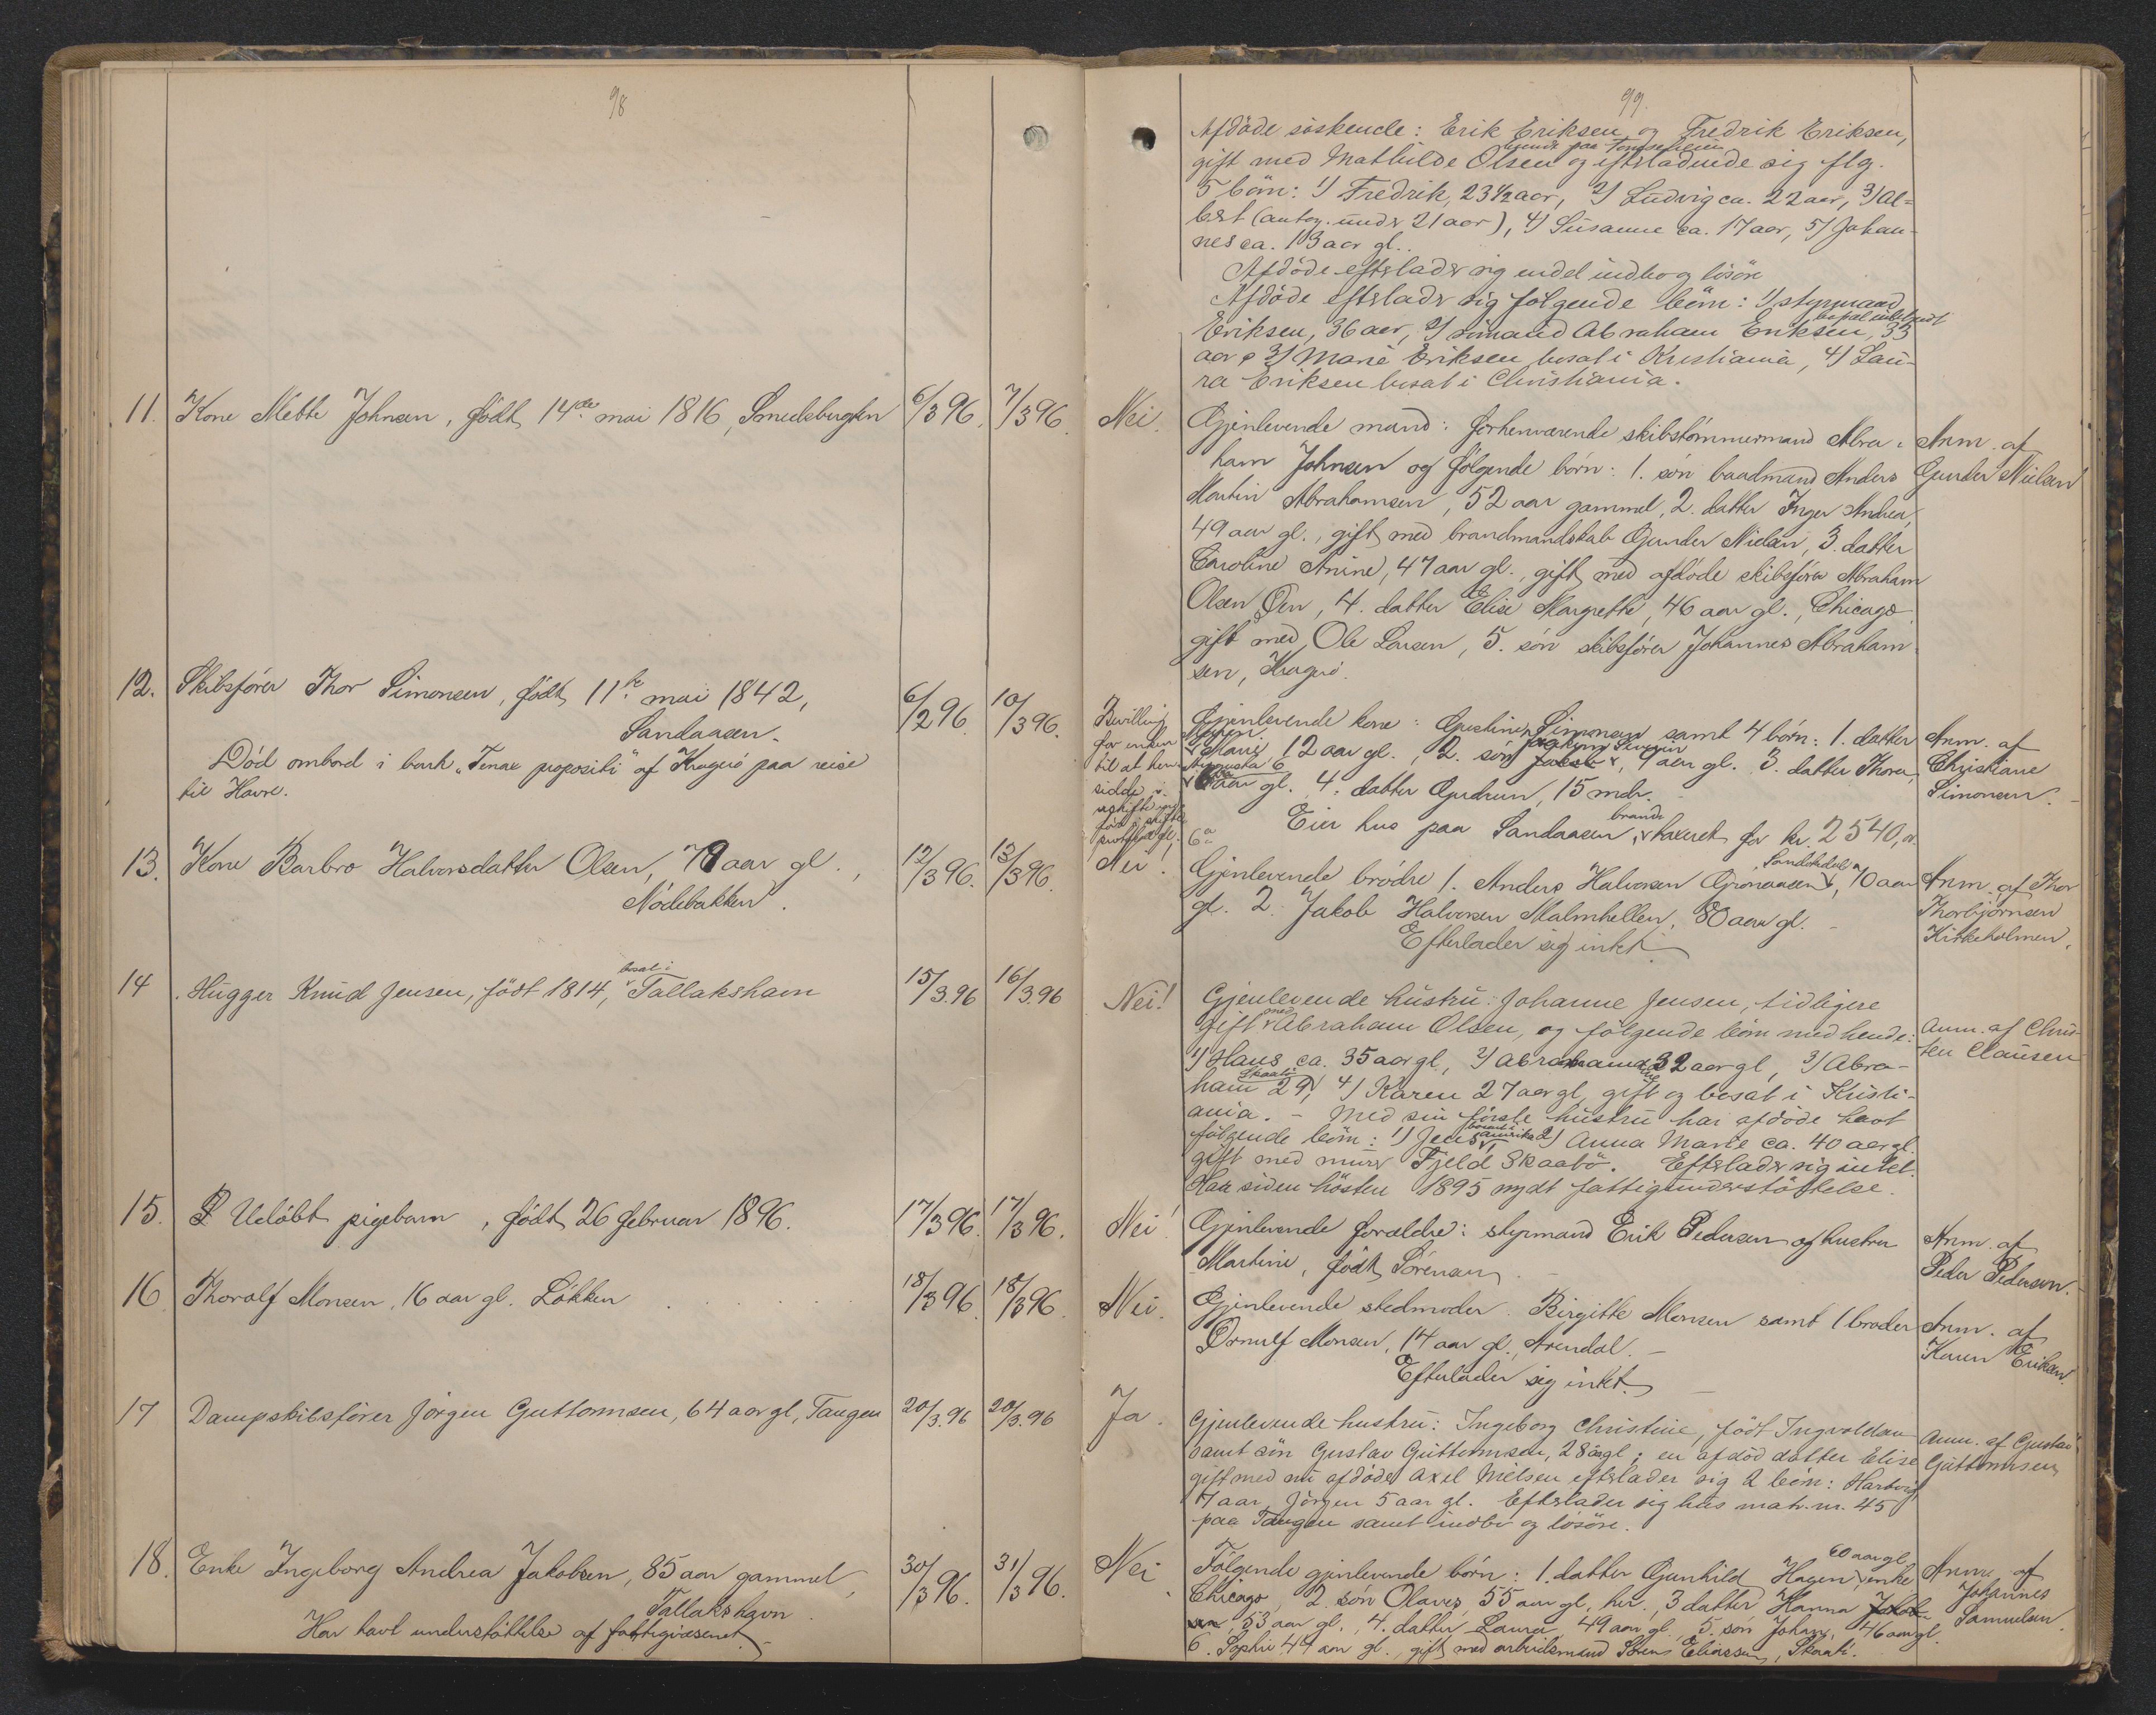 98
11. Kone Mette Johnsen, født 14de mai 1816, Smedsbugten 6/3 96. 7/3 96.
12. Skibsfører Thor Simonsen, født 11te mai 1842, 6/2 96. 10/3 96.
Sandaasen.
Död ombord i bark "Tenax propositi" af Kragerö paa reise
til Havre.
13. Kone Barbro Halvorsdatter Olsen, 79 aar gl., 12/3 96. 13/3 96.
Nödebakken.
14. Hugger Knud Jensen, födt 1814, bosat i Tallakshavn 15/3.96 16/3.96
15. Udöbt pigebarn, født 26 februar 1896. 17/3 96. 17/3 96.
16. Thoralf Monsen, 16 aar gl. Løkken 18/3 96. 18/3 96.
17 Dampskibsfører Jörgen Guttormsen, 64 aar gl, Tangen 20/3.96 20/3.96
18. Enke Ingeborg Andrea Jakobsen, 85 aar gammel, 30/3 96. 31/3 96.
Tallakshavn.
Har havt understøttelse af fattigvæsenet.
99.
Afdöde söskende: Erik Eriksen og Fredrik Eriksen,
gift med Mathilde Olsen og efterladende sig flg.
5 börn: 1) Fredrik, 23 1/2 aar, 2) Ludvig ca. 22 aar, 3) Al=
bert (antag. under 21 aar), 4) Susanne ca. 17 aar, 5) Johan-
nes ca. 13 aar gl.
Afdöde efterlader sig endel indbo og lösöre
Afdöde efterlader sig fölgende börn: 1) styrmand
Eriksen, 36 aar, 2) sömand Abraham Eriksen, 33
aar, 3) Marie Eriksen bosat i Kristiania, 4) Lau-
ra Eriksen bosat i Christiania.
Nei. Gjenlevende mand: forhenværende skibstömmermand Abra-
ham Johnsen og følgende børn: 1. søn baadmand Anders
Martin Abrahamsen, 52 aar gammel, 2. datter Inger Andrea,
49 aar gl., gift med brandmandskab Gunder Nielsen, 3. datter
Caroline Anine, 47 aar gl., gift med afdøde skibsfører Abraham
Olsen Øen, 4. datter Elise Margrethe, 46 aar gl., Chicago
gift med Ole Larsen, 5. søn skibsfører Johannes Abraham
sen, Kragerø.
Anm. af
Gunder Nielsen
Bevilling
for enken
til at hen-
sidde i
uskiftet
Gjenlevende kone: Simonsen samt 4 børn: 1. datter
Marie 12 aar gl., 2. søn 9 aar gl. 3. datter Thora
Augusta 6 aar gl. 4. datter Gudrun, 15 mdr.
Eier hus paa Sandaasen, brandtaxeret for kr. 2540,
Anm. af
Christiane
Simonsen.
Nei! Gjenlevende brødre 1. Anders Halvorsen Grønaasen, Sandøkedal, 70 aar
gl. 2. Jakob Halvorsen Malmhellen, 80 aar gl.
Efterlader sig intet.
Anm. af Thor
Thorbjørnsen
Kirkeholmen.
Nei! Gjenlevende hustru: Johanne Jensen, tidligere
gift med Abraham Olsen, og fölgende börn med hende:
1) Hans ca. 35 aar gl, 2) 32 aar gl, 3) Abra-
ham 29, 4) Karen 27 aar gl, gift og bosat i Kristi-
ania. - Med sin förste hustru har afdöde havt
fölgende börn: 1) Jens, bosat i Amerika 2) Anna Marie ca. 40 aar gl.
gift med murer Fjeld Skaatö. Efterlader sig intet.
Har siden hösten 1895 nydt fattigunderstöttelse.
Anm. af Chris-
ten Clausen
Nei! Gjenlevende forældre: styrmand Erik Pedersen og hustru
Martine, født Sørensen.
Anm. af
Peder Pedersen.
Nei. Gjenlevende stedmoder Birgitte Monsen samt 1 broder
Ørnulf Monsen, 14 aar gl., Arendal.
Efterlader sig intet.
Anm. af
Karen Eriksen.
Ja. Gjenlevende hustru: Ingeborg Christine, födt Ingvoldsen
samt sön Gustav Guttormsen, 28 aar gl; en afdöd datter Elise
gift med nu afdöde Axel Nielsen efterlader sig 2 börn: Hartvig
7 aar, Jörgen 5 aar gl. Efterlader sig hus matr. nr. 45
paa Tangen samt indbo og lösöre.
Anm. af Gustav
Guttormsen
Nei Følgende gjenlevende børn: 1. datter Gunhild Hagen, 60 aar gl, enke
Chicago, 2. søn Olaves, 55 aar gl, her, 3 datter Hanna
53 aar gl., 4. datter Laura 49 aar gl., 5. søn Johan, 46 aar gl.
6. Sophie 44 aar gl., gift med arbeidsmand Sörens Eliassen, Skaatö.
Anm. af
Johannes
Samuelsen.